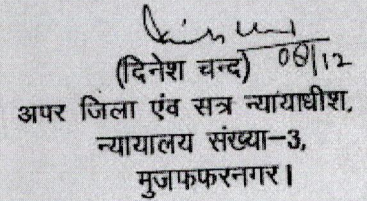 (दिनेश चन्द) 08/12
अपर जिला एंव सत्र न्यायाधीश,
न्यायालय संख्या-3,
मुजफफरनगर।